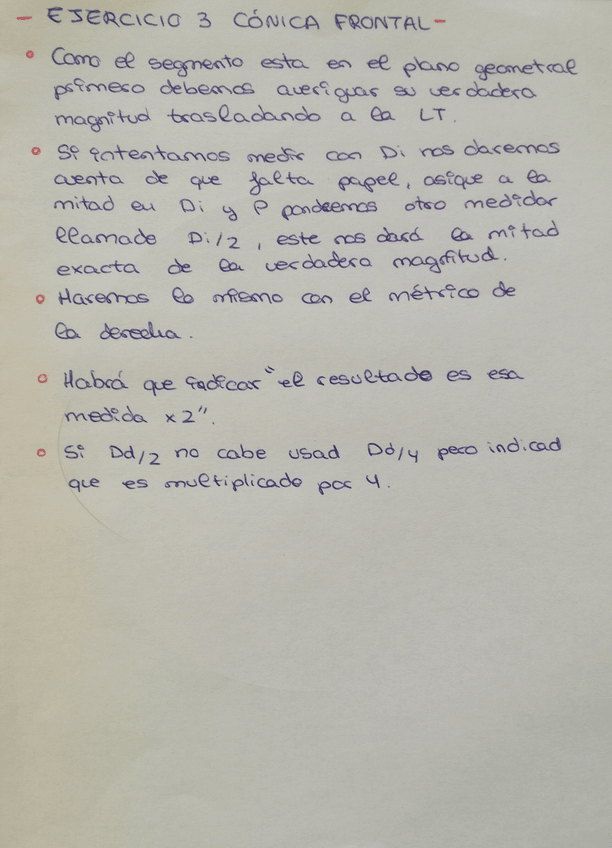 - EJERCICIO 3 CÓNICA FRONTAL -
Como el segmento esta en el plano geometral
primero debemos averiguar su verdadera
magnitud trasladando a la LT.
Si intentamos medir con Di nos daremos
cuenta de que falta papel, asique a la
mitad eu Di y P pondremos otro medidor
llamado Di/2, este nos dará la mitad
exacta de la verdadera magnitud.
Haremos lo mismo con el métrico de
la derecha.
Habrá que indicar "el resultado es esa
medida x 2".
Si Dd/2 no cabe usad Dd/4 pero indicad
que es multiplicado por 4.